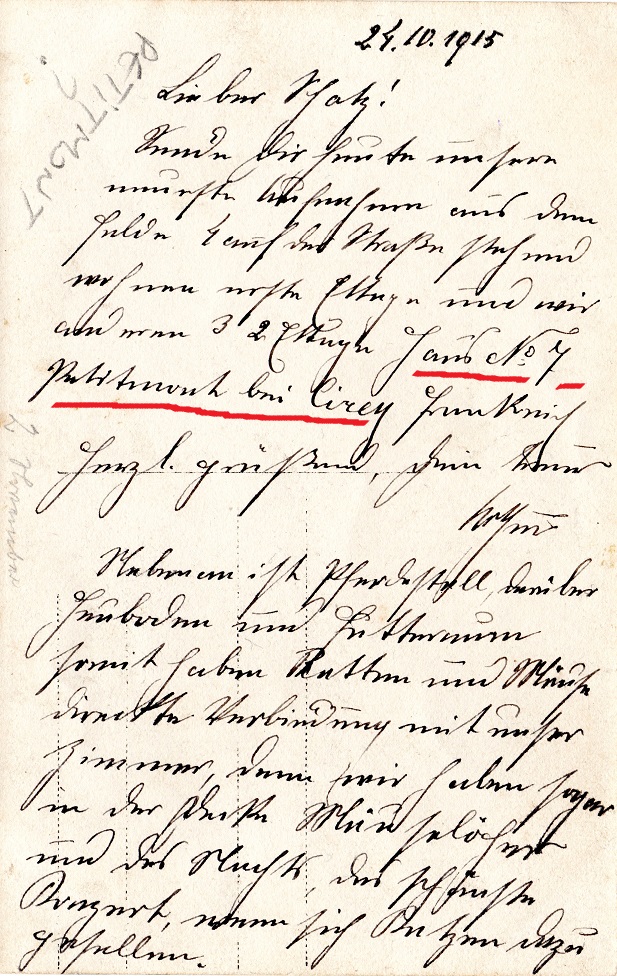 24.10.1915
PETITMONT
?
Lieber Schatz!
Sende Dir heute unsere
neueste Aufnahme aus dem
Felde 4 auf der Straße stehend
wohnen erste Ettage und wir
anderen 3 2 Ettage Haus No 7
Petitmont bei Cirey Frankreich
Herzl. grüßend, Dein treuer
Nebenan ist Pferdestall, darüber
Heuboden und Futterraum
somit haben Ratten und Mäuse
direkte Verbindung mit unser
Zimmer, denn wir haben sogar
in der Decke Mäuselöcher
und des Nachts, das schönste
Konzert, wenn sich Katzen dazu
gesellen.